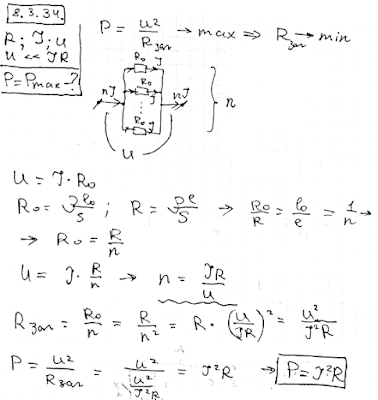 8.3.34.
R; J; U
U << JR
P=Pmax-?
P = U²/Rзаг → max ⇒ Rзаг → min
R₀ J
R₀
nJ J nJ
R₀ J
n
U
U = J·R₀
R₀ = ρl₀/S ; R = ρl/S → R₀/R = l₀/l = 1/n →
→ R₀ = R/n
U = J · R/n → n = JR/U
Rзаг = R₀/n = R/n² = R · (U/JR)² = U²/J²R
P = U²/Rзаг = U²/(U²/J²R) = J²R → P = J²R